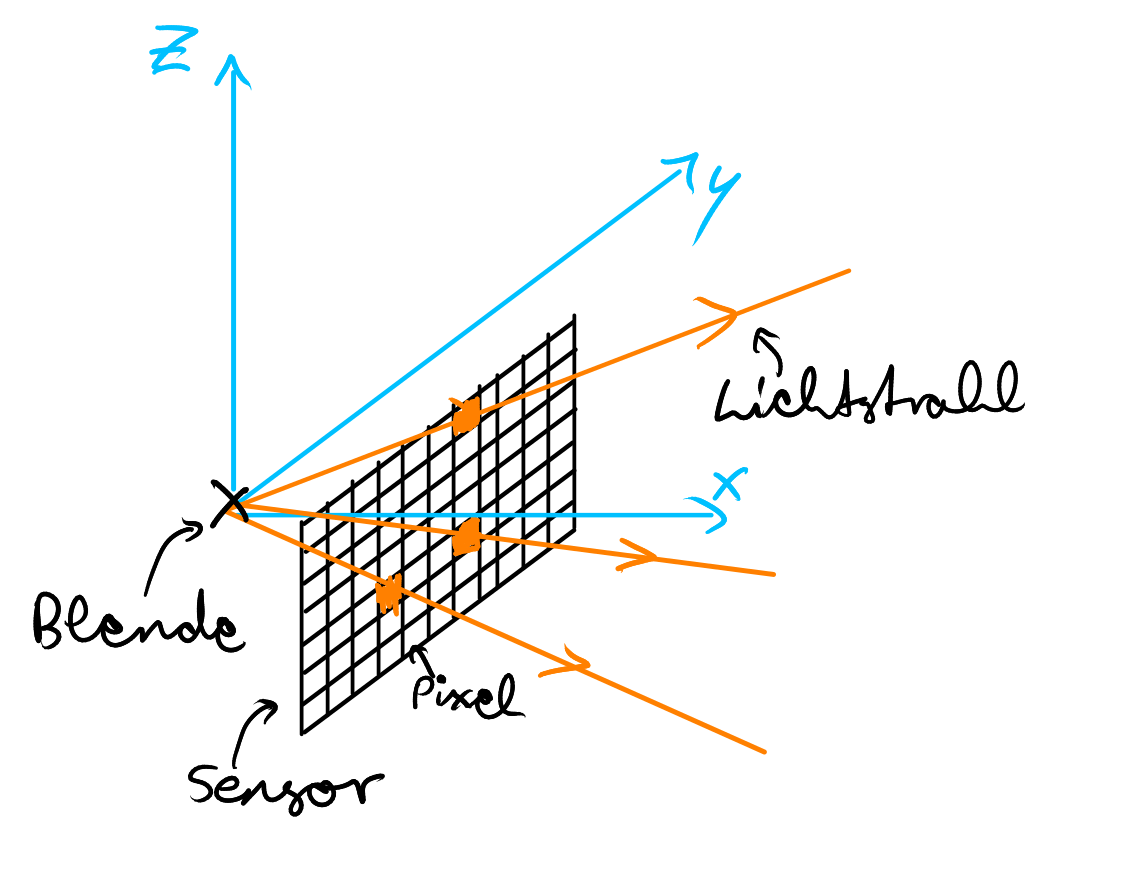 Z
y
Lichtstrahl
x
Blende
Pixel
Sensor